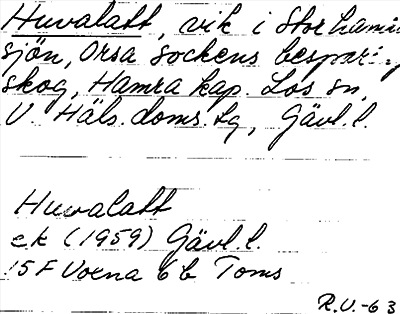 Huvalatt, vik i Storhamra
sjön, Orsa sockens bespar
skog, Hamra kap. Los sn,
V. Häls. doms. lg, Gävl. l.
Huvalatt
ek (1959) Gävl. l.
15 F Voxna 6b Toms
R.V.-63